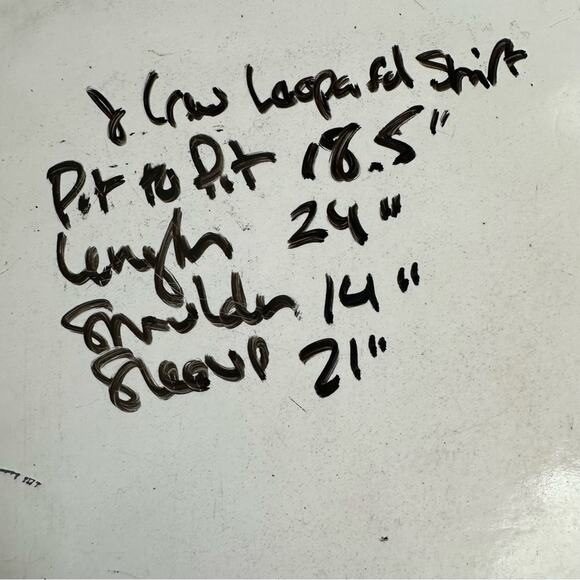 J Crew Leopard Shirt
Pit to Pit 18.5"
Length 24"
Shoulder 14"
Sleeve 21"